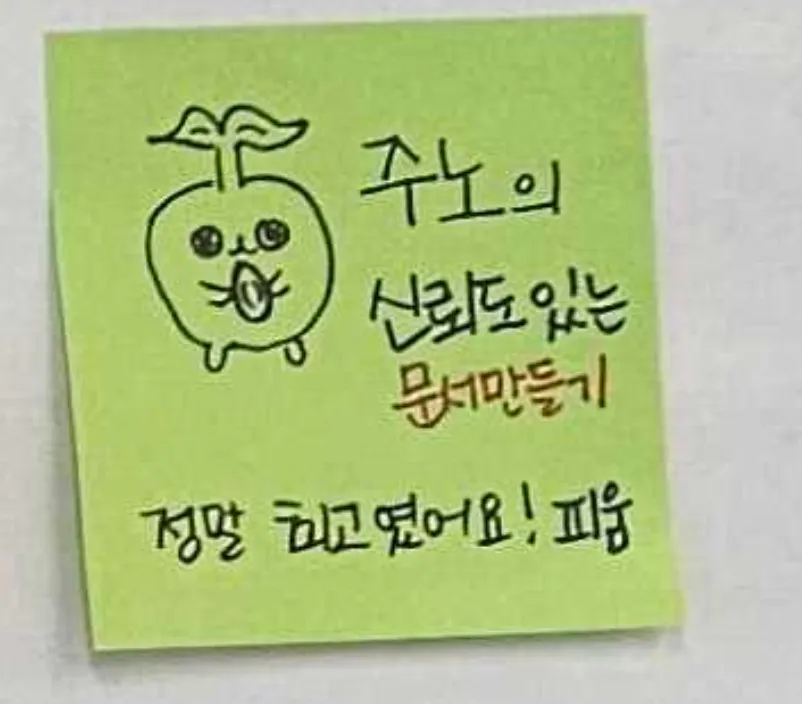 주노의
신뢰도있는
문서만들기
정말 최고였어요! 피움